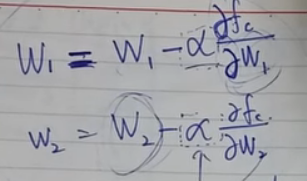 W₁ = W₁ - α ∂fc/∂W₁
W₂ = W₂ - α ∂fc/∂W₂